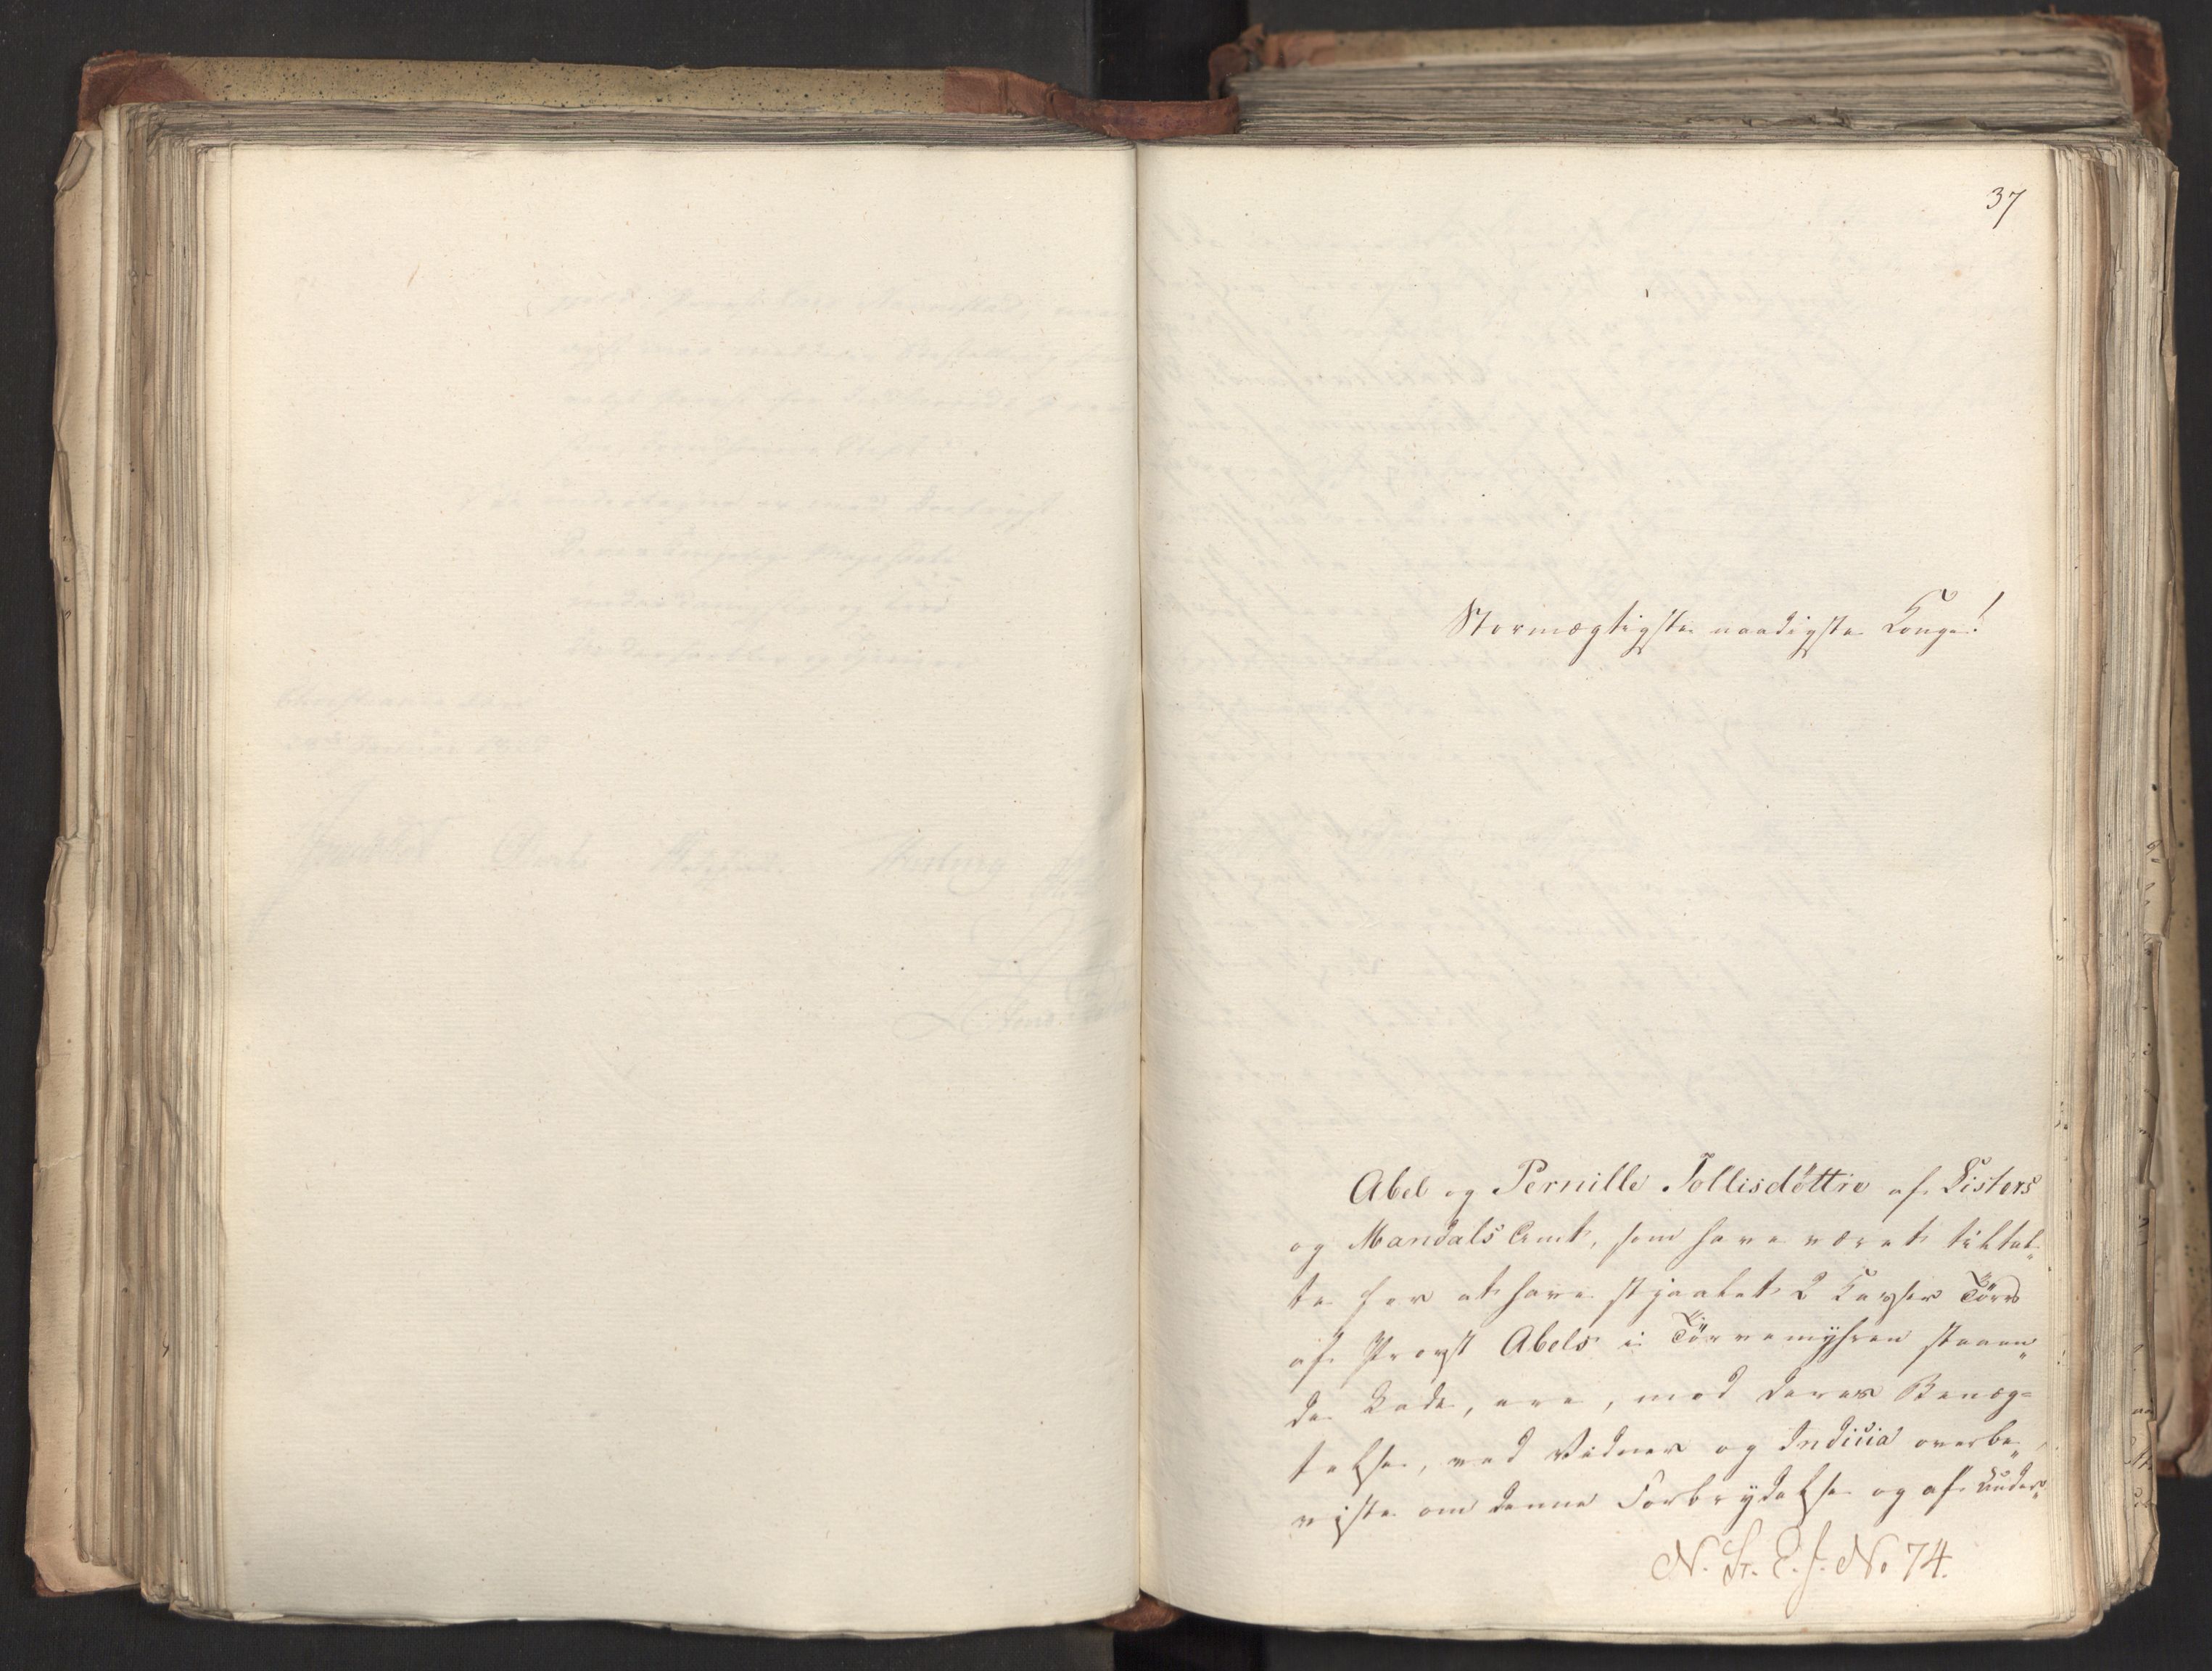 37
Stormægtigste naadigste Konge!
Abel og Pernille Tollisdøttre af Listers
og Mandals Amt, som have været tiltal„
te for at have stjaalet 2 Kasser Törv
af Provst Abels i Törvemyhren staaen„
de Lade, ere, mod deres Benæg=
telse, ved Vidner og Indicia overbe„
viste om denne Forbrydelse og af Under„
N. St. E. J. No 74.